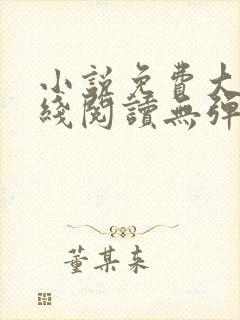 小說免費大
綫閱讀無彈
董某来